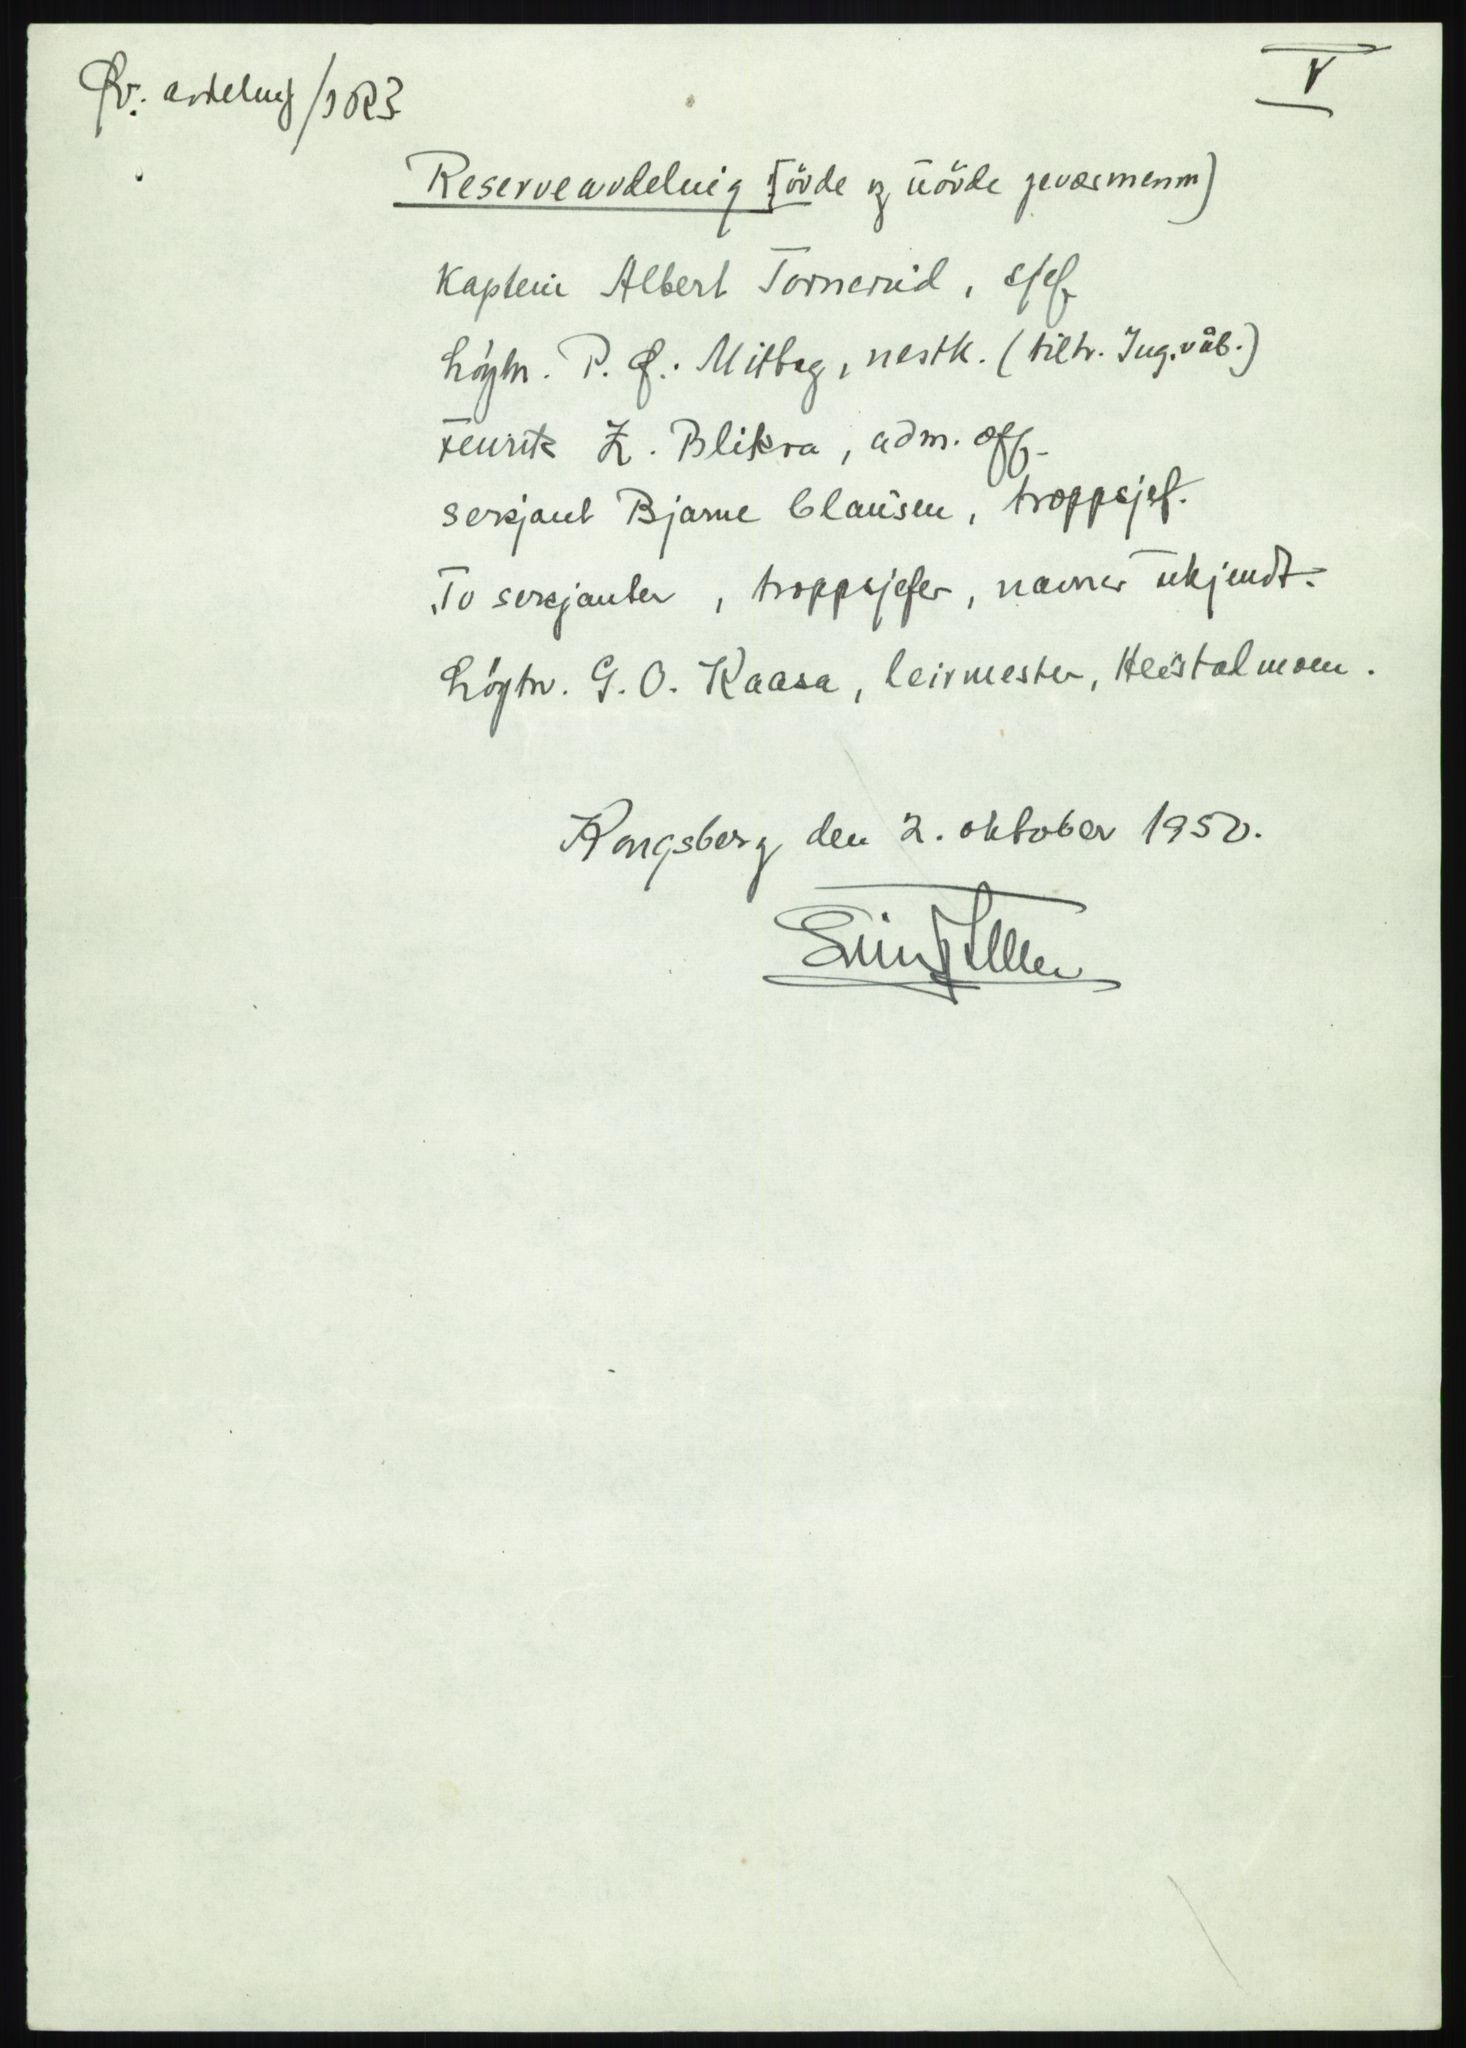 Rv. avdeling/IR3
V
Reserveavdeling (övde og uövde geværmenn)
Kaptein Albert Tornerud, sjef
Löytn. P. Mitbog, nestk. (tiltr. Ing.våb.)
Fenrik Z. Blikra, adm. off.
Sersjant Bjarne Clausen, troppsjef.
To sersjanter, troppsjefer, navner ukjendt.
Löytn. G. O. Kaasa, leirmester, Heistadmoen.
Kongsberg den 2. oktober 1950.